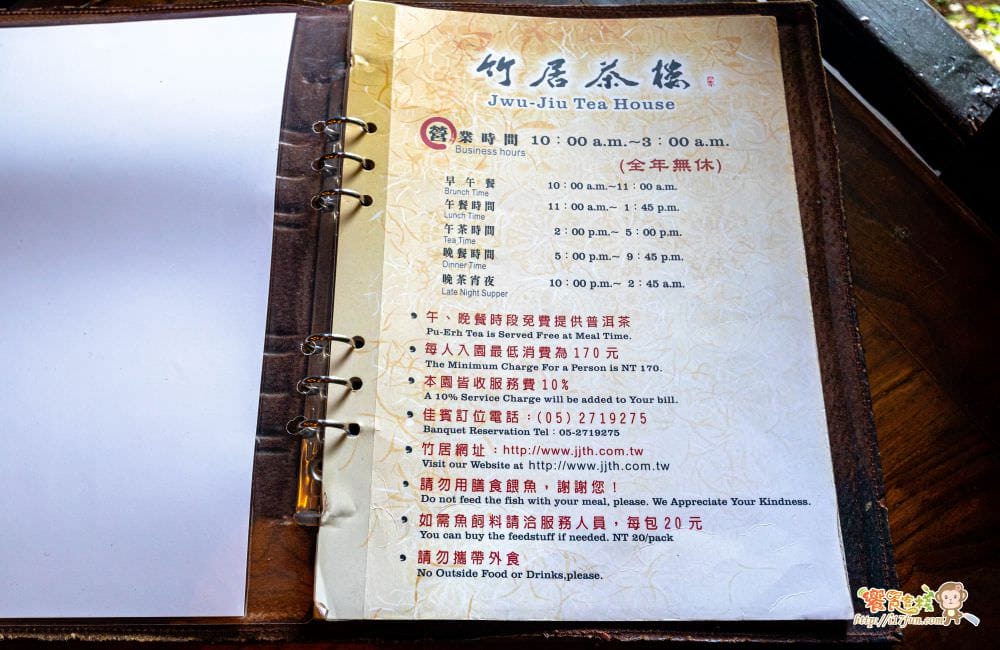 竹居茶樓
Jwu-Jiu Tea House
營業時間 10：00 a.m.~3：00 a.m.
Business hours
(全年無休)
早午餐 10：00 a.m.~11：00 a.m.
Brunch Time
午餐時間 11：00 a.m.~ 1：45 p.m.
Lunch Time
午茶時間 2：00 p.m.~ 5：00 p.m.
Tea Time
晚餐時間 5：00 p.m.~ 9：45 p.m.
Dinner Time
晚茶宵夜 10：00 p.m.~ 2：45 a.m.
Late Night Supper
午、晚餐時段免費提供普洱茶
Pu-Erh Tea is Served Free at Meal Time.
每人入園最低消費為170元
The Minimum Charge For a Person is NT 170.
本園皆收服務費10%
A 10% Service Charge will be added to Your bill.
佳賓訂位電話：(05) 2719275
Banquet Reservation Tel：05-2719275
竹居網址：http://www.jjth.com.tw
Visit our Website at http://www.jjth.com.tw
請勿用膳食餵魚，謝謝您！
Do not feed the fish with your meal, please. We Appreciate Your Kindness.
如需魚飼料請洽服務人員，每包20元
You can buy the feedstuff if needed. NT 20/pack
請勿攜帶外食
No Outside Food or Drinks,please.
http://t17fun.com/